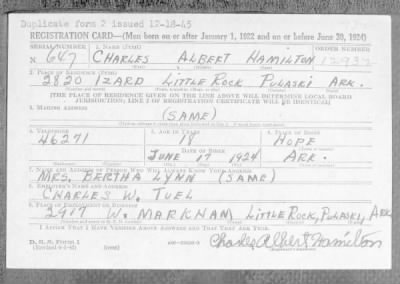 Duplicate form 2 issued 12-18-45
REGISTRATION CARD—(Men born on or after January 1, 1922 and on or before June 30, 1924)
SERIAL NUMBER 1. NAME (Print) ORDER NUMBER
N 647 CHARLES ALBERT HAMILTON 12937
2. PLACE OF RESIDENCE (Print)
2820 IZARD LITTLE ROCK PULASKI ARK.
(THE PLACE OF RESIDENCE GIVEN ON THE LINE ABOVE WILL DETERMINE LOCAL BOARD
JURISDICTION; LINE 2 OF REGISTRATION CERTIFICATE WILL BE IDENTICAL)
3. MAILING ADDRESS
(SAME)
4. TELEPHONE 5. AGE IN YEARS 6. PLACE OF BIRTH
46271 18 HOPE
DATE OF BIRTH
JUNE 17 1924 ARK.
7. NAME AND ADDRESS OF PERSON WHO WILL ALWAYS KNOW YOUR ADDRESS
MRS. BERTHA LYNN (SAME)
8. EMPLOYER'S NAME AND ADDRESS
CHARLES W. TUEL
9. PLACE OF EMPLOYMENT OR BUSINESS
2917 W. MARKHAM LITTLE ROCK, PULASKI, ARK
I AFFIRM THAT I HAVE VERIFIED ABOVE ANSWERS AND THAT THEY ARE TRUE.
D. S. S. Form 1
Charles Albert Hamilton